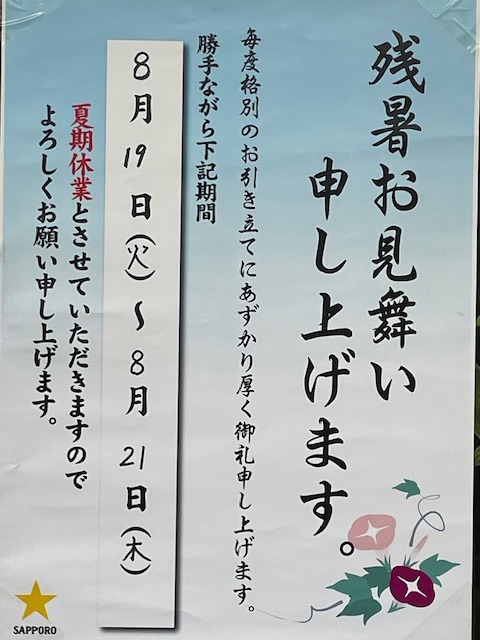 残暑お見舞い
申し上げます。
毎度格別のお引き立てにあずかり厚く御礼申し上げます。
勝手ながら下記期間
8月19日(火)～8月21日(木)
夏期休業とさせていただきますので
よろしくお願い申し上げます。
SAPPORO